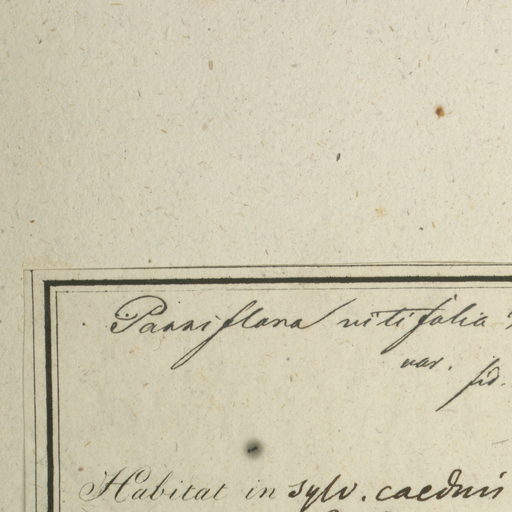 Passiflora vitifolia
var. fid.
Habitat in sylv. caeduis